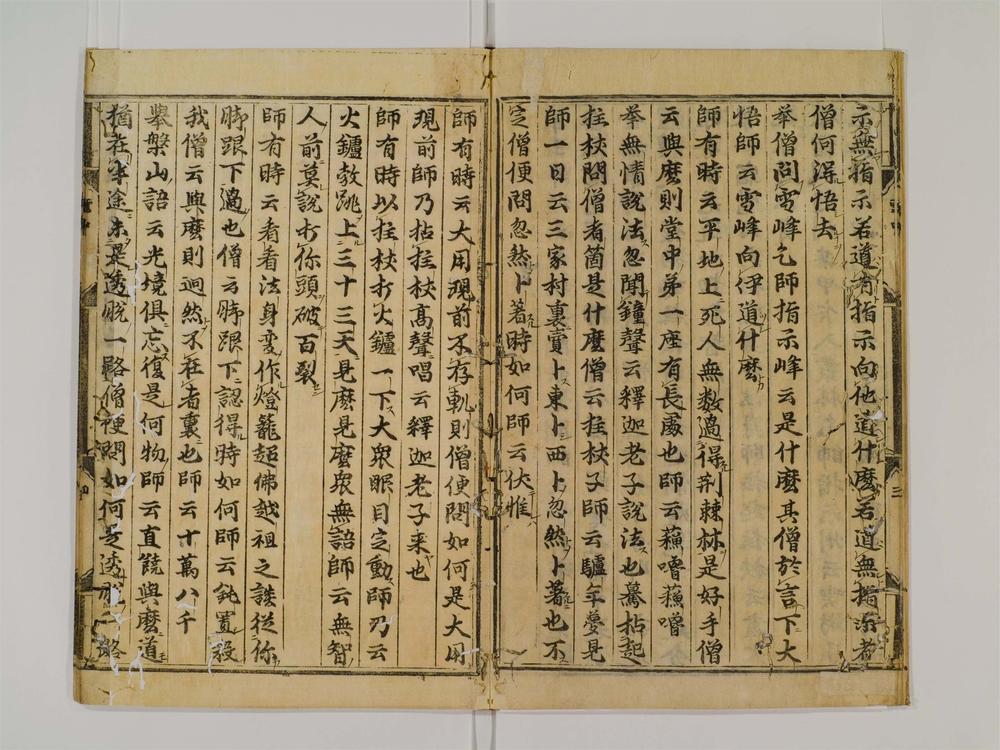 示無指示若道有指示向他道什麽若道無指示者
僧何得悟去
举僧問雪峰乞師指示峰云是什麽其僧於言下大
悟師云雪峰向伊道什麽
師有時云平地上死人無数過得荆棘林是好手僧
云與麽則堂中弟一座有長處也師云蘓嚕蘓嚕
举無情說法忽聞鐘聲云釋迦老子說法也驀拈起
拄杖問僧者箇是什麽僧云拄杖子師云驢年夢見
師一日云三家村裏賣卜東卜西卜忽然卜著也不
定僧便問忽然卜著時如何師云伏惟
師有時云大用現前不存軌則僧便問如何是大用
現前師乃拈拄杖髙聲唱云釋迦老子来也
師有時以拄杖打火鑪一下大衆眼目定動師乃云
火鑪教跳上三十三天見麽見麽衆無語師云無智
人前莫說打你頭破百裂
師有時云看看法身变作燈籠超佛越祖之談從你
脚跟下過也僧云脚跟下認得時如何師云鈍置殺
我僧云與麽則迥然不在者裏也師云十萬八千
舉盤山語云光境俱忘復是何物師云直饒與麽道
猶在半途未是透脫一路僧便問如何是透脫一路
三
四